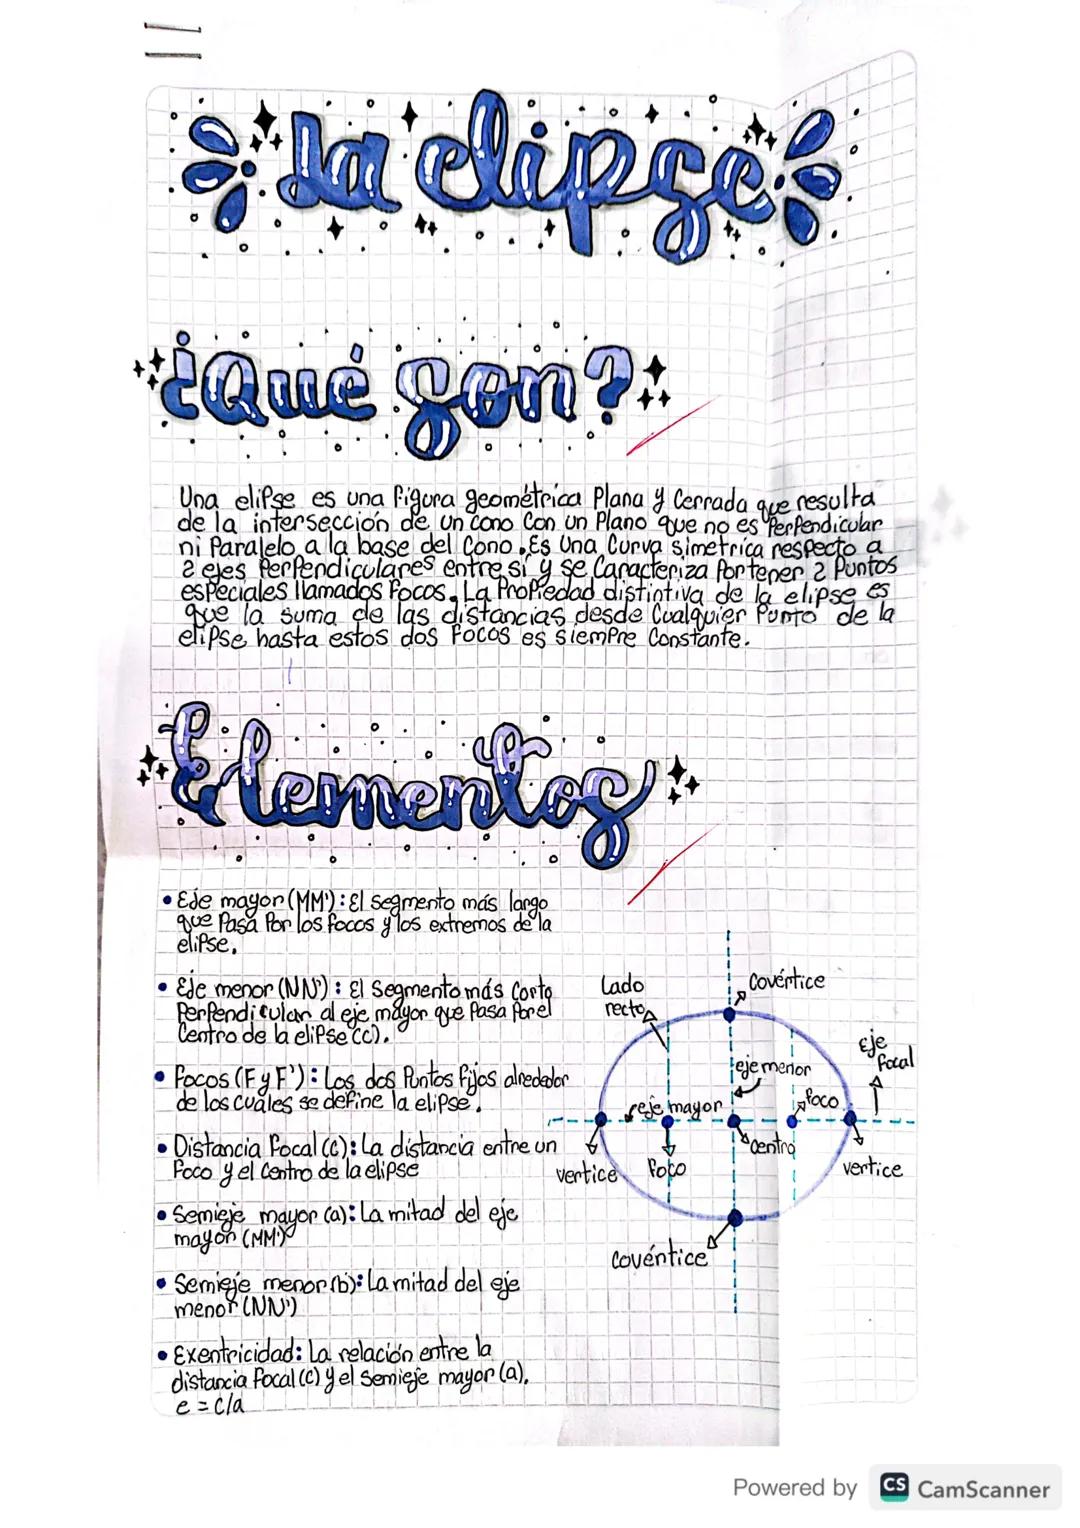 La elipse
¿Qué son?
Una elipse es una figura geométrica Plana y Cerrada que resulta
de la intersección de un cono Con un Plano que no es Perpendicular
ni Paralelo a la base del Cono. Es Una Curva simetrica respecto a
2 ejes Perpendiculares entre sí y se Caracteriza Por tener 2 Puntos
especiales llamados Focos. La Propiedad distintiva de la elipse es
que la suma de las distancias desde Cualquier Punto de la
elipse hasta estos dos Focos es siempre Constante.
Elementos
• Eje mayor (MM'): El segmento más largo
que Pasa Por los focos y los extremos de la
elipse.
• Eje menor (NN'): El Segmento más Corto
Perpendicular al eje mayor que Pasa Por el
Centro de la elipse (c).
• Focos (F y F'): Los dos Puntos Fijos alrededor
de los cuales se define la elipse.
• Distancia Focal (C): La distancia entre un
Foco y el Centro de la elipse
• Semieje mayor (a): La mitad del eje
mayor (MM')
• Semieje menor (b): La mitad del eje
menor (NN')
• Exentricidad: La relación entre la
distancia Focal (c) y el Semieje mayor (a).
e = c/a
Lado
recto
Covértice
Eje
Focal
eje menor
Foco
eje mayor
Centro
vertice
Foco
vertice
Covéntice
Powered by CS CamScanner